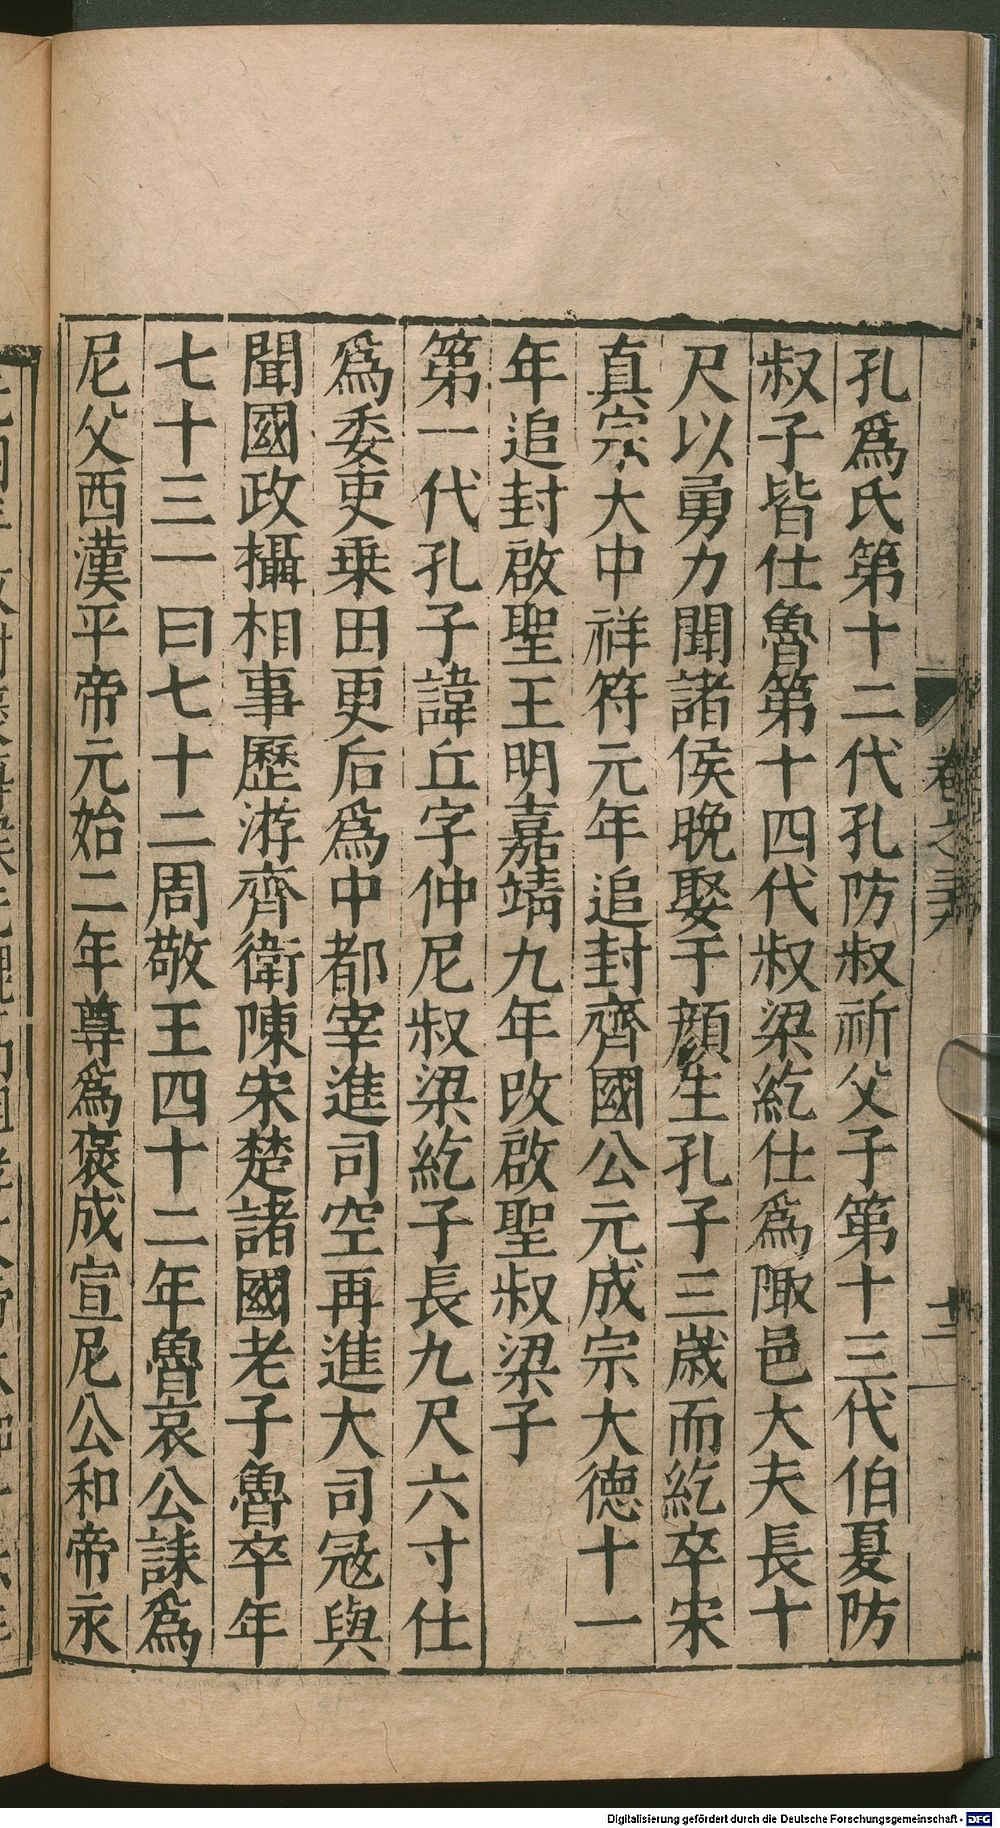 孔爲氏第十二代孔防叔祈父子第十三代伯夏防
叔子皆仕魯第十四代叔梁紇仕爲陬邑大夫長十
尺以勇力聞諸侯晚娶于顏生孔子三歲而紇卒宋
真宗大中祥符元年追封齊國公元成宗大德十一
年追封啟聖王明嘉靖九年改啟聖叔梁子
第一代孔子諱丘字仲尼叔梁紇子長九尺六寸仕
爲委吏乗田更后爲中都宰進司空再進大司冦與
聞國政攝相事歷游齊衛陳宋楚諸國老子魯卒年
七十三一曰七十二周敬王四十二年魯哀公誄爲
尼父西漢平帝元始二年尊爲褒成宣尼公和帝永
Digitalisierung gefördert durch die Deutsche Forschungsgemeinschaft - DFG